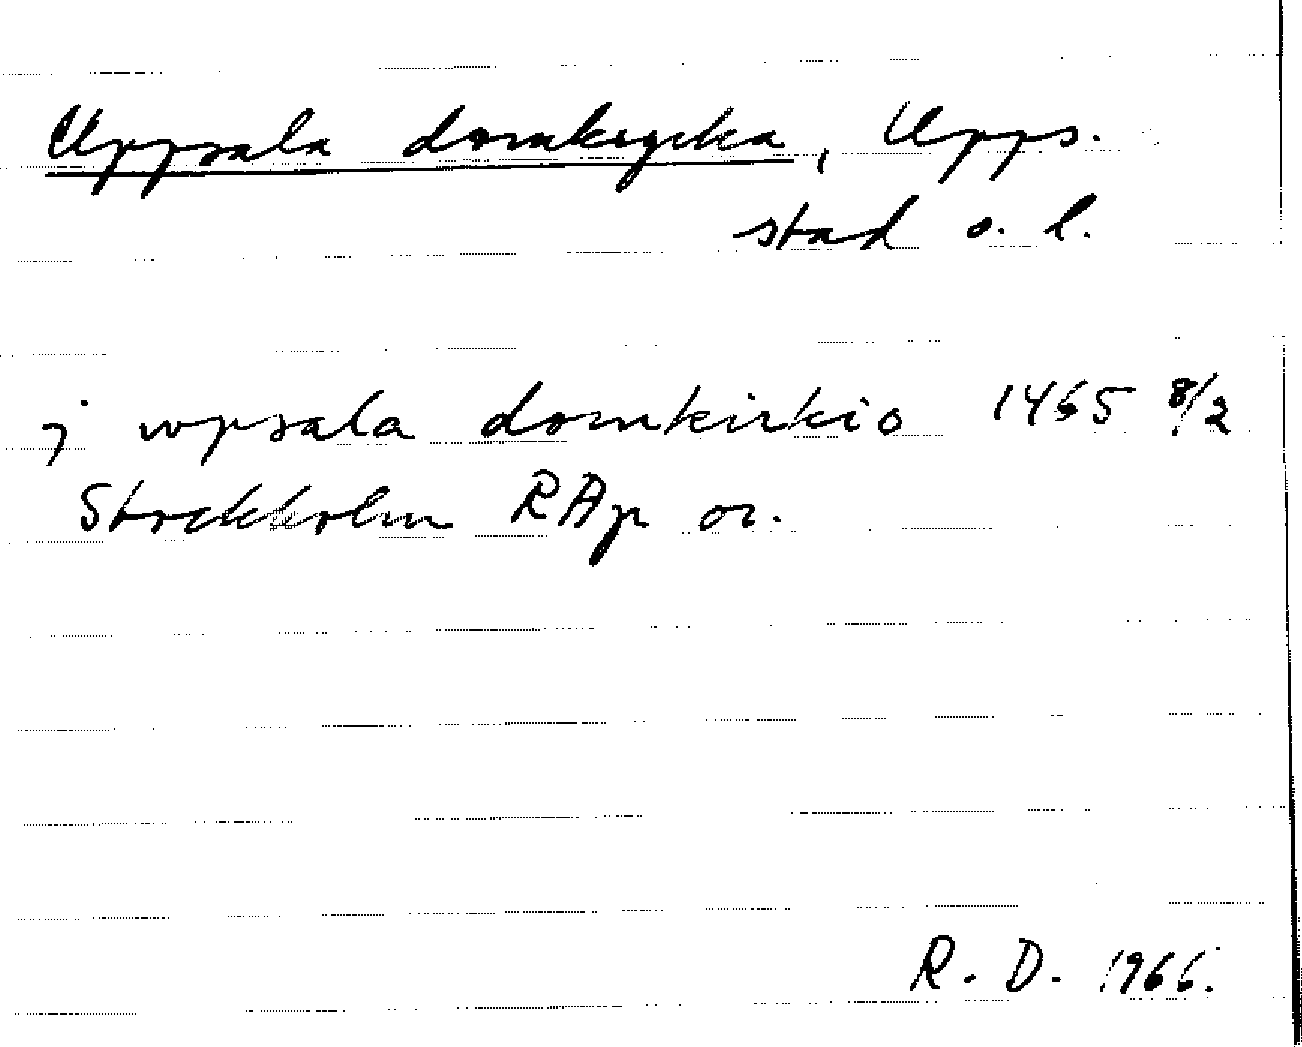 Uppsala domkyrka, Upps.
stad o. l.
j wpsala domkirkio 1465 8/2
Stockholm RAp or.
R. D. 1966.